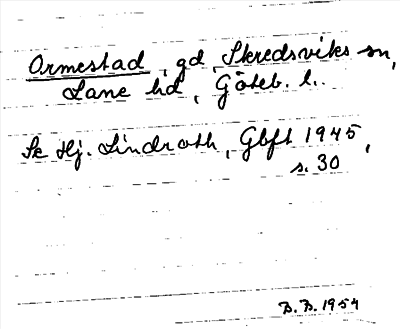 Ormestad, gd, Skredsviks sn,
Lane hd, Göteb. l.
Se Hj. Lindroth, Gbft 1945,
s. 30
B. B. 1954